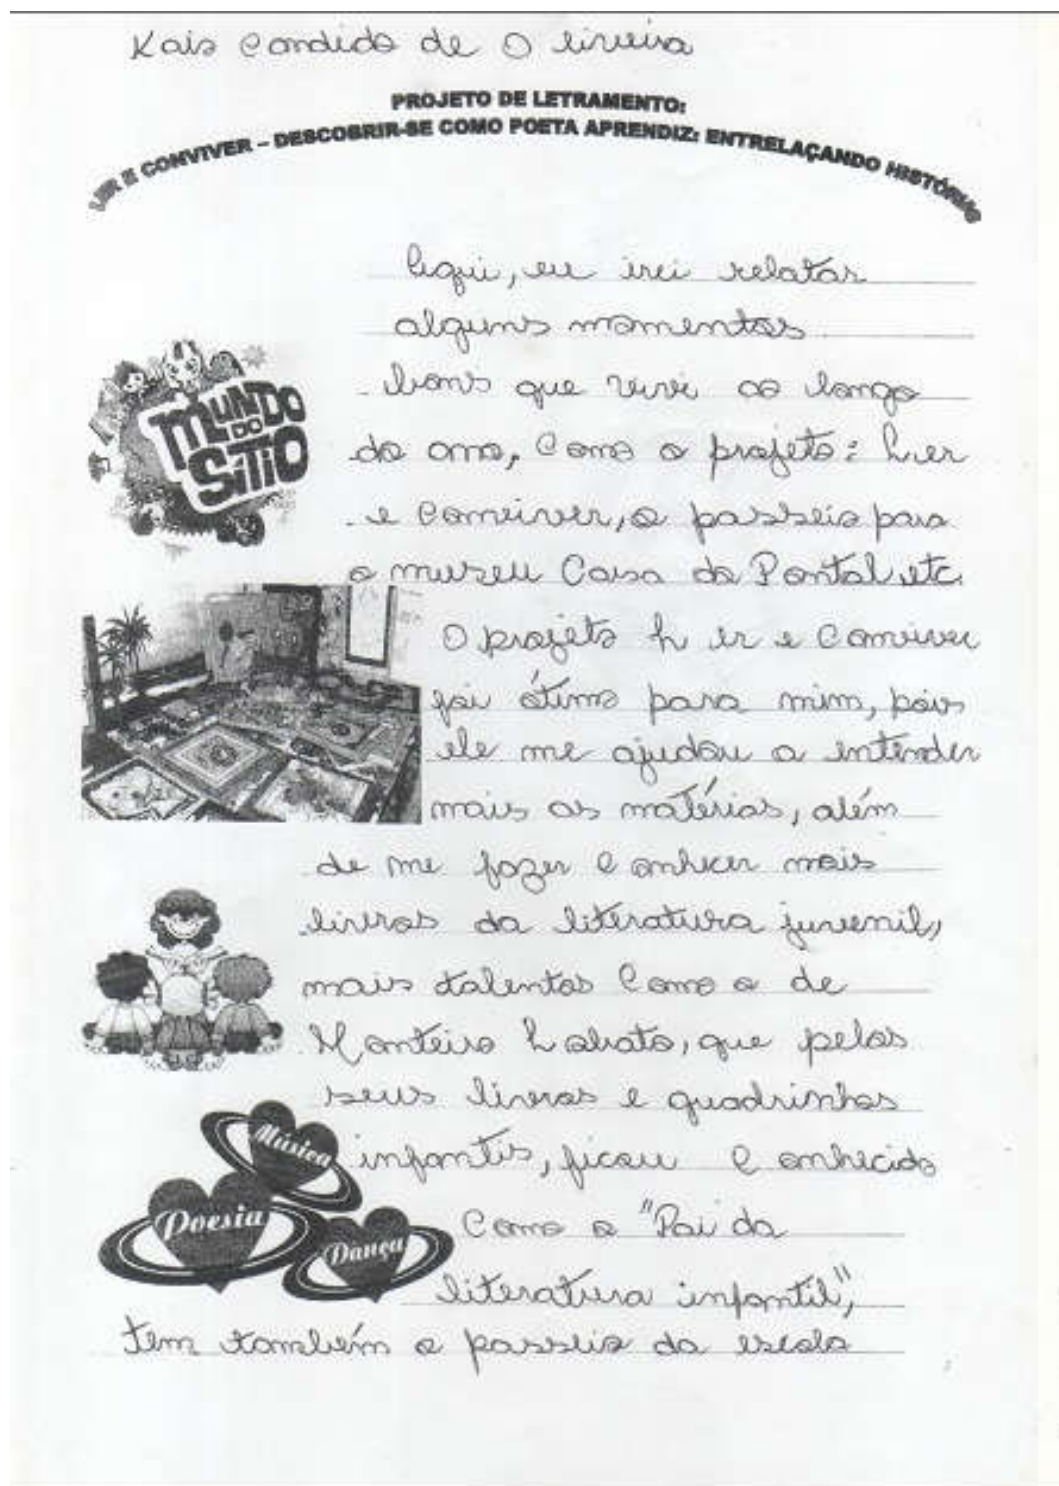 Kais Candido de Oliveira
PROJETO DE LETRAMENTO:
LER E CONVIVER – DESCOBRIR-SE COMO POETA APRENDIZ: ENTRELAÇANDO HISTÓRIAS
Aqui, eu irei relatar
alguns momentos
bons que vivi ao longo
do ano, Como o projeto: Ler
e Conviver, o passeio para
o museu Casa do Pontal etc.
O projeto Ler e Conviver
foi ótimo para mim, pois
ele me ajudou a intender
mais as matérias, além
de me fazer Conhecer mais
livros da literatura juvenil,
mais talentos Como o de
Monteiro Lobato, que pelos
seus livros e quadrinhos
infantis, ficou Conhecido
Como o "Pai da
literatura infantil",
tem também o passeio da escola
MUNDO
DO
SÍTIO
Música
Poesia
Dança